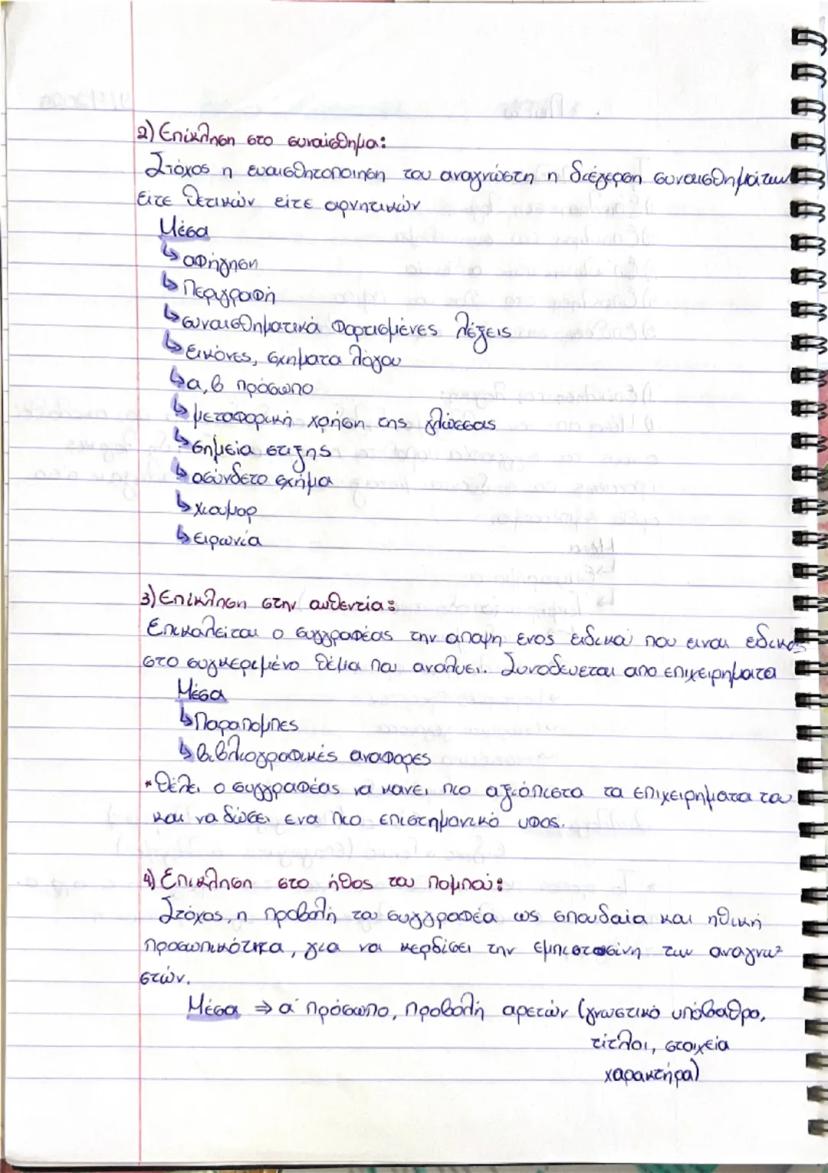 2) Επίκληση στο συναίσθημα:
Στόχος η ευαισθητοποιηση του αναγνώστη η διέγερση συναισθημάτων
είτε θετικών είτε αρνητικών
Μέσα
↳ αφήγηση
↳ Περιγραφή
↳ συναισθηματικά φορτισμένες λέξεις
↳ εικόνες, σχηματα λόγου
↳ α, β πρόσωπο
↳ μεταφορική χρήση της γλώσσας
↳ σημεία στιξης
↳ ασύνδετο σχήμα
↳ χιουμορ
↳ ειρωνία
3) Επίκληση στην αυθεντία:
Επικαλείται ο συγγραφέας την αποψη ενος ειδικού που ειναι εδικος
στο συγκεριμένο θέμα που αναλυει. Συνοδεύεται απο επιχειρηματα
Μέσα
↳ Παραπομπες
↳ βιβλιογραφικές αναφορες
* Θέλει ο συγγραφέας να κανει πιο αξιόπιστα τα επιχειρηματα του
και να δώσει ενα πιο επιστημονικό υφος.
4) Επικληση στο ήθος του πομπού:
Στόχος, η προβολή του συγγραφέα ως σπουδαία και ηθική
προσωπικότητα, για να κερδίσει την εμπιστοσύνη των αναγνω-
στών.
Μέσα ⇒ α' πρόσωπο, προβολή αρετών (γνωστικό υπόβαθρο,
τίτλοι, στοιχεία
χαρακτήρα)